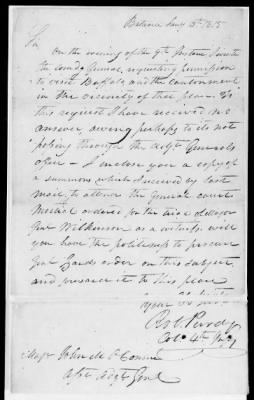 Batavia Jany 15th 1815
Sir
On the evening of the 9th Instant I wrote
the comdg General, requesting permission
to visit Buffalo, and the cantonment
in the vicinity of that place. To
this request I have received no
answer, owing perhaps to its not
passing through the Adjt Generals
office — I inclose you a copy of
a summons, which I received by last
mail, to attend the General court
Martial ordered for the trial of Major
Genl Wilkinson as a witness. will
you have the politeness to procure
Genl order on this subject
and forward it to this place
Your Obt Servt
Robt Purdy
Col. 4th Infy
Major John McConnell
Asst Adjt Genl